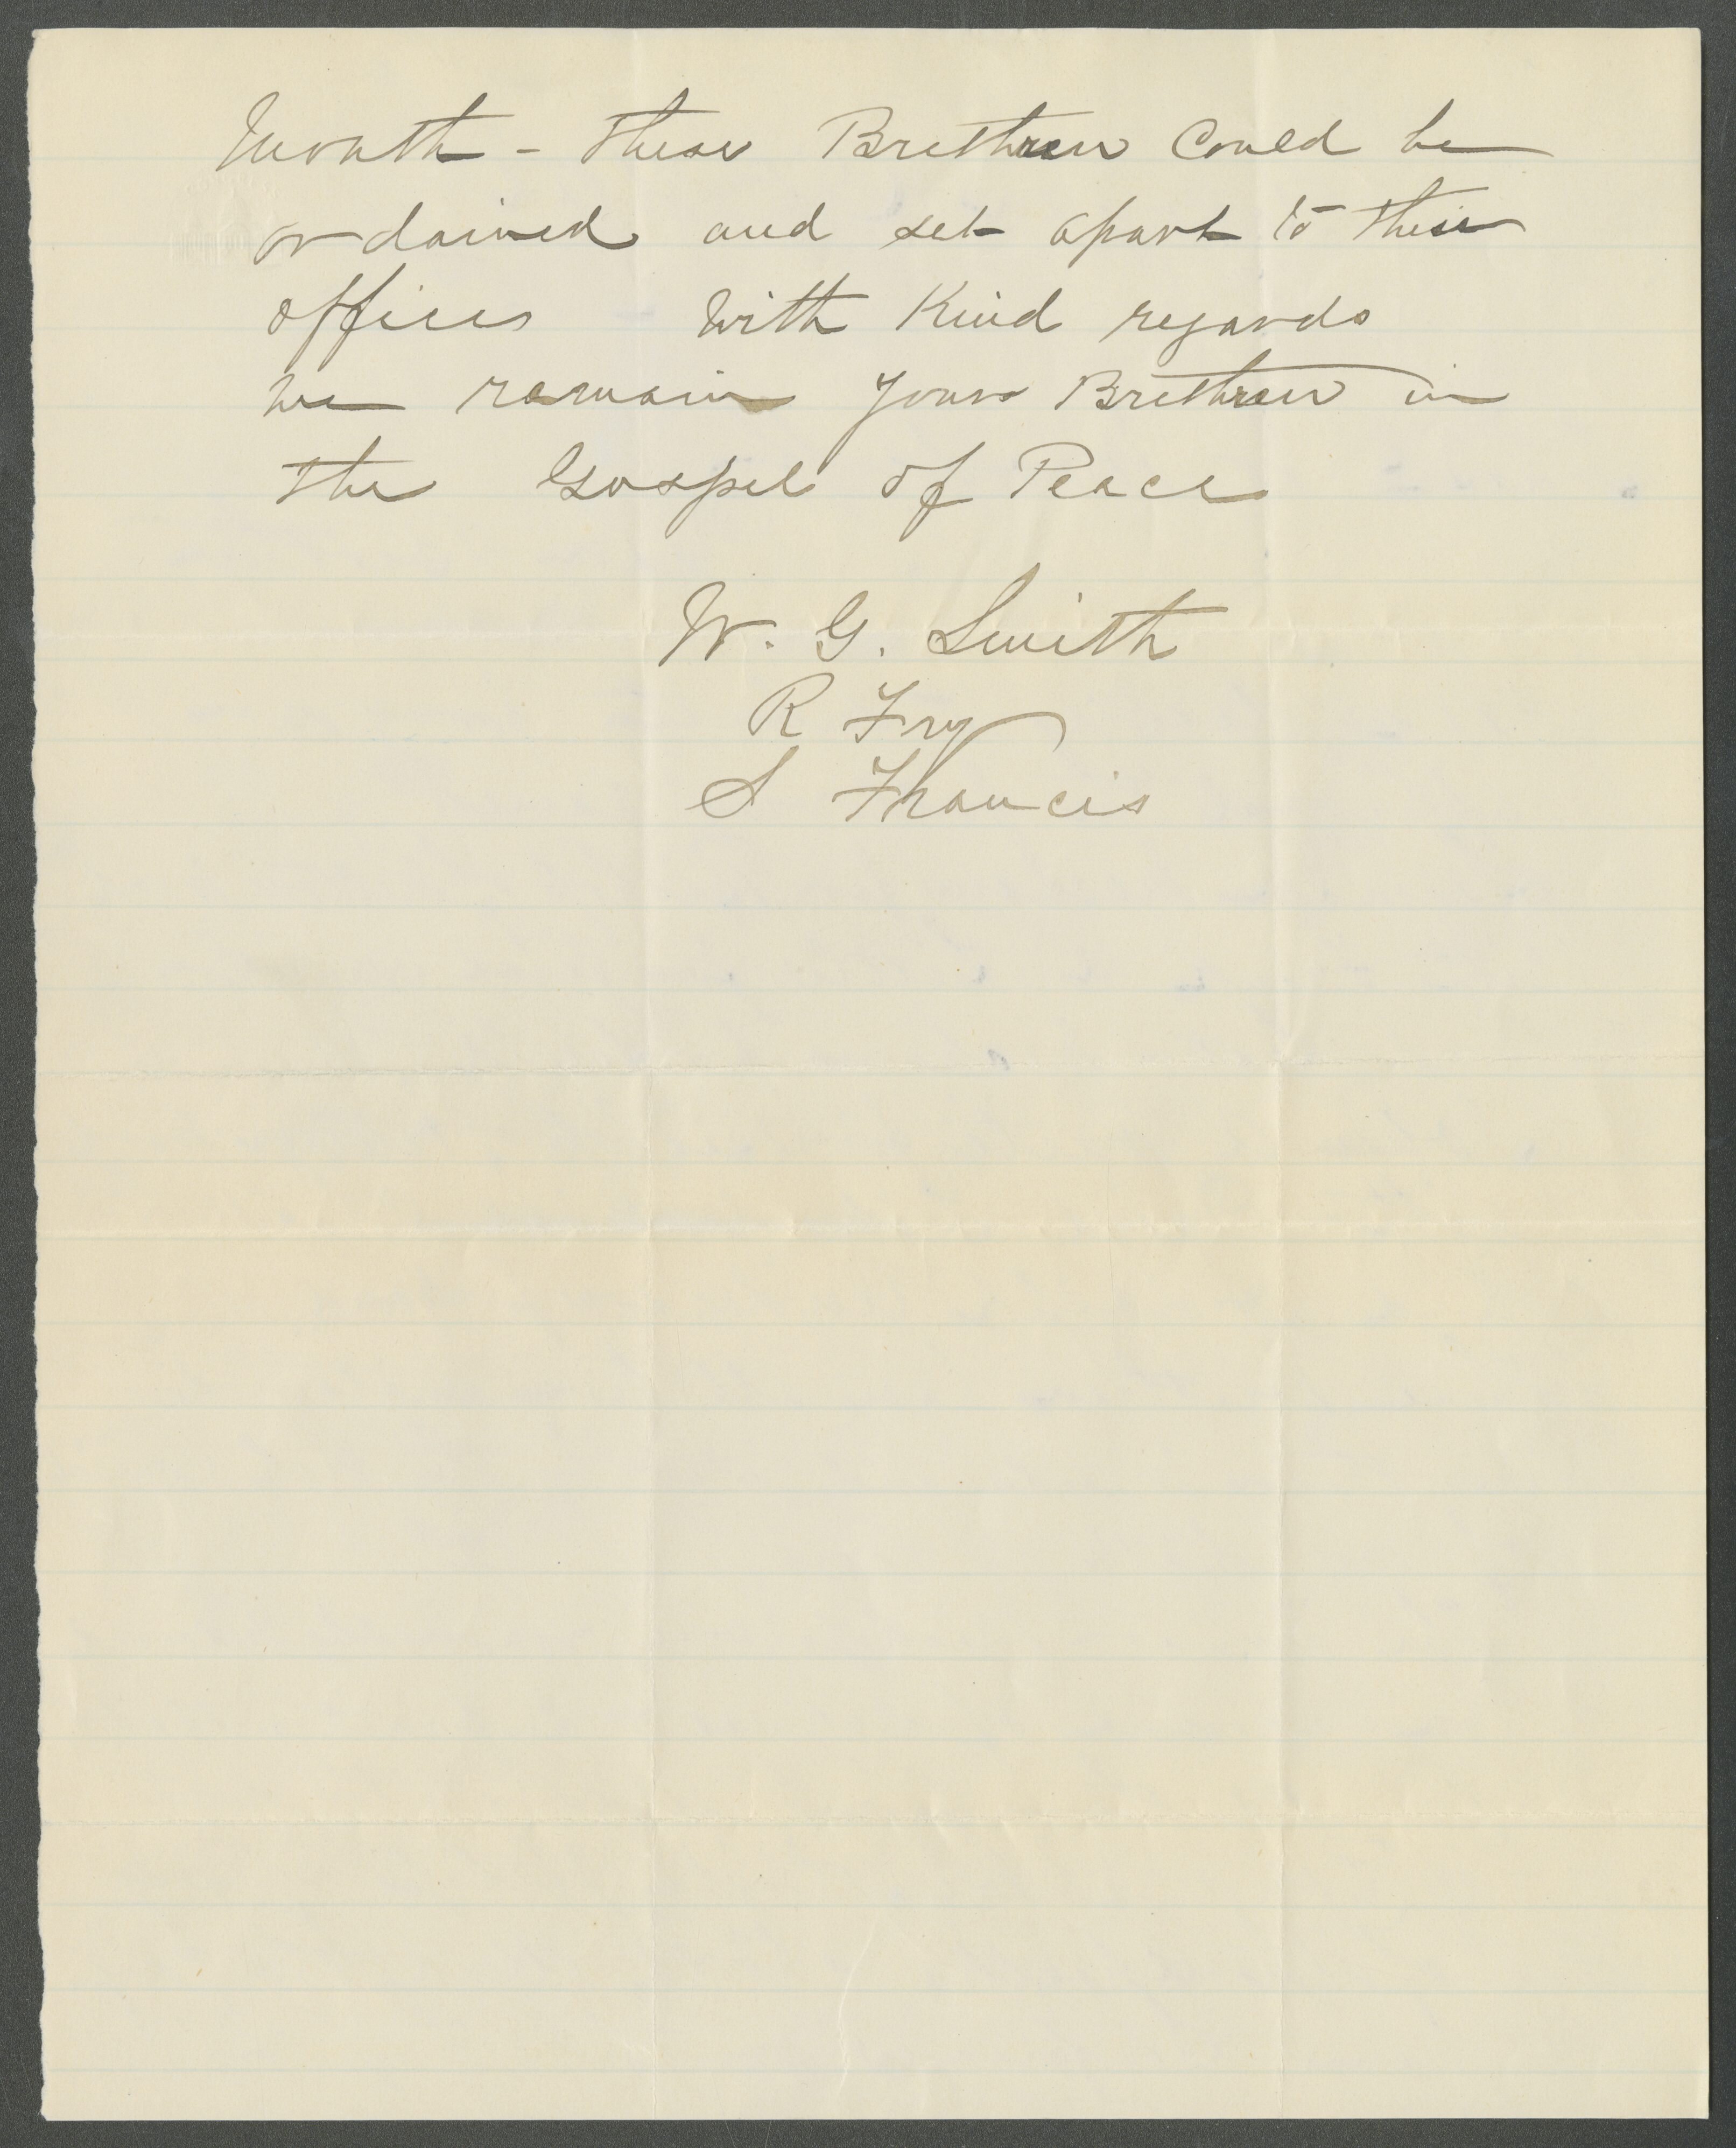 Month - these Brethren Could be
ordained and set apart to their
offices With Kind regards
we remain Your Brethren in
the Gospel of Peace
W. G. Smith
R Fry
S Francis